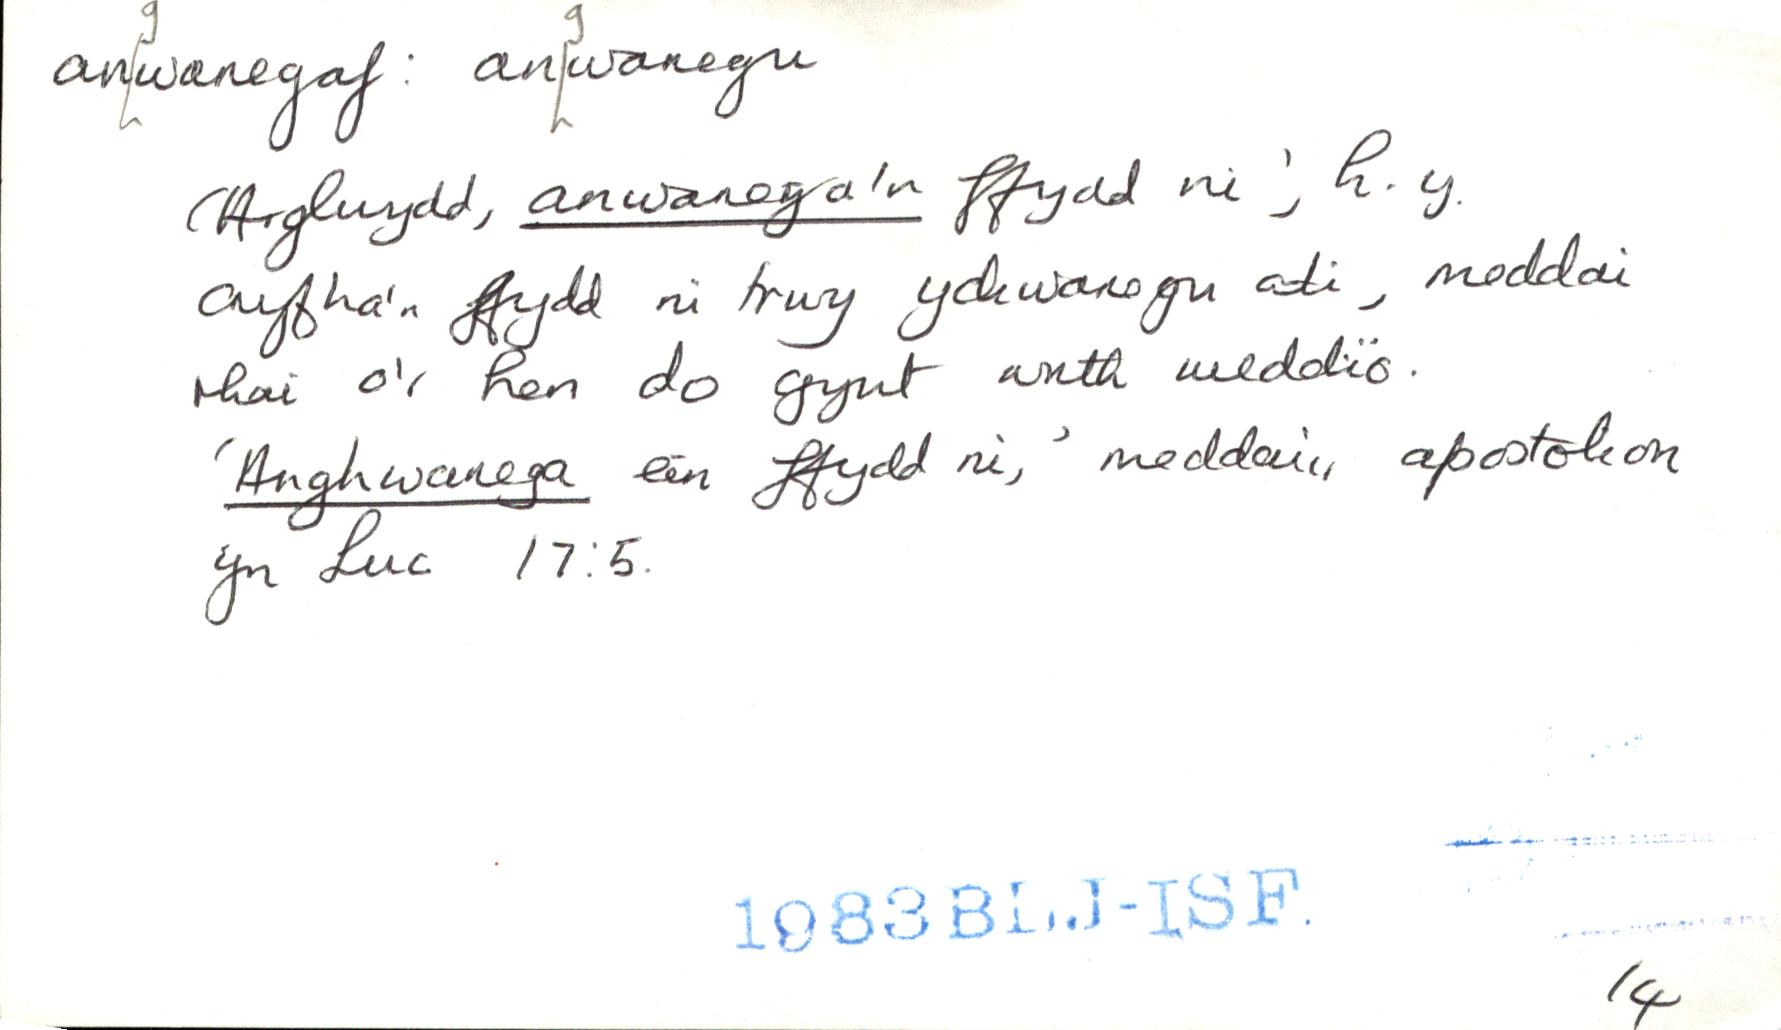 an[g]wanegaf: an[g]wanegu
'Arglwydd, anwanega'n ffydd ni', h.y.
cryfha'n ffydd ni trwy ychwanegu ati, meddai
rhai o'r hen do gynt wrth weddïo.
'Anghwanega ein ffydd ni,' meddai'r apostolion
yn Luc 17:5.
1983 BLJ-ISF.
14